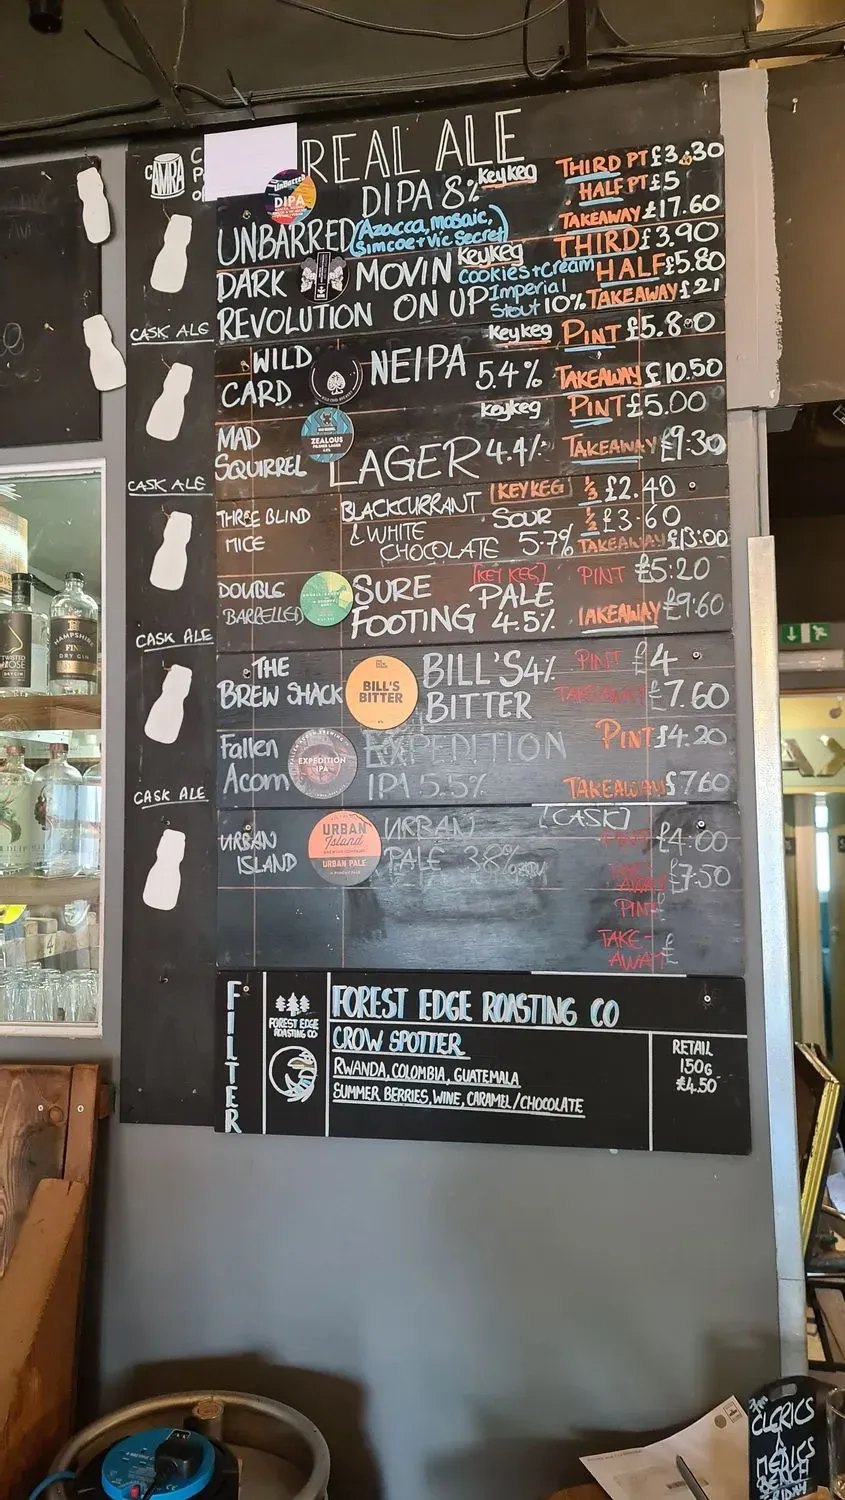 CAMRA
REAL ALE
UNBARRED DIPA 8% Keykeg THIRD PT £3.30
HALF PT £5
(Azacca, Mosaic, Simcoe + Vic Secret) TAKEAWAY £17.60
DARK REVOLUTION MOVIN ON UP Keykeg THIRD £3.90
Cookies + Cream HALF £5.80
Imperial Stout 10% TAKEAWAY £21
CASK ALE
WILD CARD NEIPA 5.4% Keykeg PINT £5.80
TAKEAWAY £10.50
MAD SQUIRREL LAGER 4.4% Keykeg PINT £5.00
ZEALOUS
TAKEAWAY £9.30
CASK ALE
THREE BLIND MICE BLACKCURRANT (KEYKEG) ⅓ £2.40
& WHITE SOUR ½ £3.60
CHOCOLATE 5.7% TAKEAWAY £13.00
DOUBLE BARRELLED SURE FOOTING [KEY KEG] PINT £5.20
PALE 4.5% TAKEAWAY £9.60
CASK ALE
THE BREW SHACK BILL'S BITTER 4% PINT £4
BILL'S BITTER
TAKEAWAY £7.60
Fallen Acorn EXPEDITION PINT £4.20
EXPEDITION IPA
IPA 5.5% TAKEAWAY £7.60
CASK ALE
URBAN ISLAND URBAN [CASK] PINT £4.00
URBAN Island
URBAN PALE
PALE 3.8% TAKE AWAY £7.50
PINT £
TAKE-AWAY £
FILTER
FOREST EDGE ROASTING CO
FOREST EDGE ROASTING CO
CROW SPOTTER
RWANDA, COLOMBIA, GUATEMALA
SUMMER BERRIES, WINE, CARAMEL/CHOCOLATE
RETAIL
150G
£4.50
HAMPSHIRE
FINE
DRY GIN
CLERICS
&
MEDICS
BENCH
FRIDAY